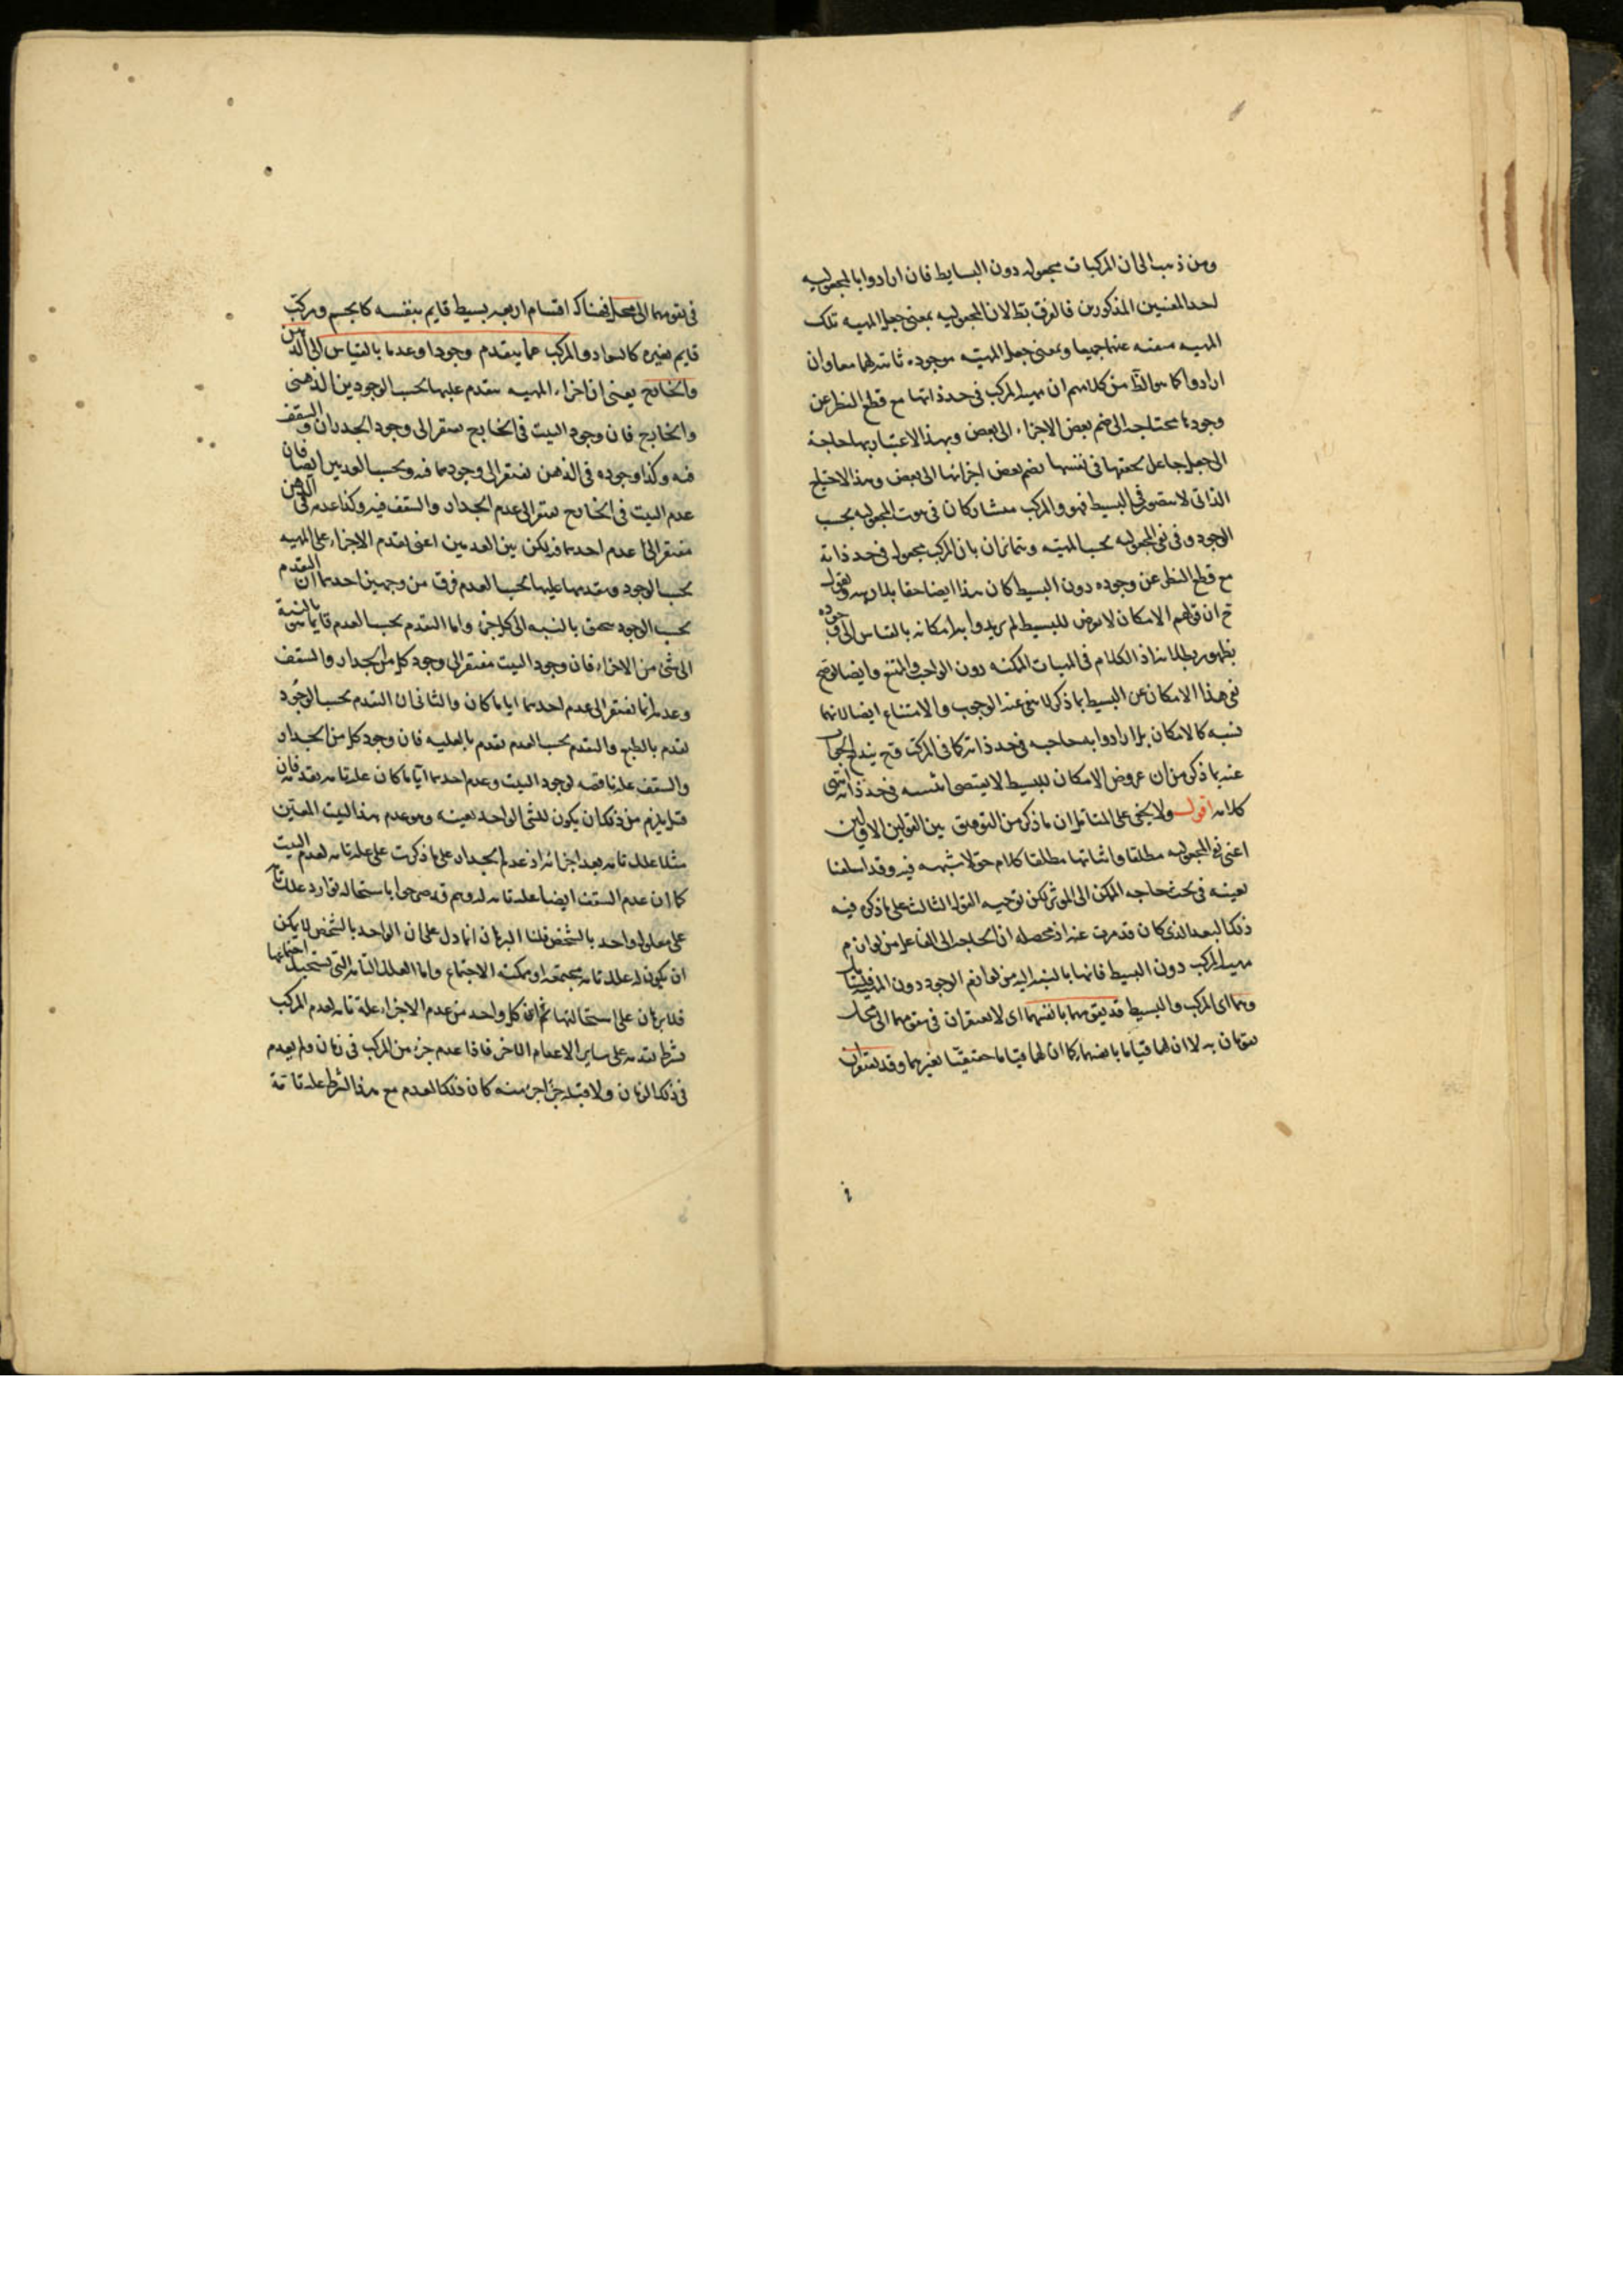 ومن ذهب الى ان المركبات مجعولة دون البسايط فان ارادوا بالمجعوليه
احد المعنيين المذكورين فالفرق بط لان المجعوليه بمعنى جعل المهيه تلك
المهيه منتفيه عنها جميعا وبمعنى جعل المهيّه موجوده ثابته لهما معا وان
ارادوا كما هو الظّ من كلامهم ان مهيه المركب فى حد ذاتها مع قطع النظر عن
وجودها محتاجه الى ضم بعض الاجزاء الى بعض وبهذا الاعتبار لها حاجة
الى جعل جاعل يحققها فى نفسها بضم بعض اجزائها الى بعض وهذا الاحتياج
الذاتى لا يتصور فى البسيط فهو والمركب متشاركان فى ثبوت المجعوليه بحسب
الوجود وفى نفى المجعوليه بحسب المهيّه ويتمايزان بان المركب مجعول فى حد ذاته
مع قطع النظر عن وجوده دون البسيط كان هذا ايضا حقا بلا ريبه وقول
ان قولهم الامكان لا يعرض للبسيط لم يريدوا به امكانه بالقياس الى وجوده
بظهور بطلانه اذ الكلام فى المهيات الممكنه دون الواجب والممتنع وايضا لو صح
نفى هذا الامكان عن البسيط بما ذكر لا نتفى عنه الوجوب والامتناع ايضا لانهما
نسبه كالامكان بل ارادوا به حاجه فى حد ذاته كما فى المركب فح يندفع
عنه ما ذكر من ان عروض الامكان للبسيط لا يقتضى اثنينيه فى حد ذاته انتهى
كلامه اقول ولا يخفى على المتامل ان ما ذكر من التوفيق بين القولين الاولين
اعنى نفى المجعوليه مطلقا واثباتها مطلقا كلام حق لا شبهه فيه وقد اسلفنا
بعينه فى بحث حاجه الممكن الى المؤثر لكن توجيه القول الثالث على ما ذكره فيه
ذلك البعد الذى كان قد هرب عنه اذ محصله ان الحاجه الى الفاعل من لوازم
مهيه المركب دون البسيط فانها بالنسبه اليه من لوازم الوجود دون المهيه
وهما اى المركب والبسيط قد يقومهما بانفسهما اى لا يفتقران فى تقومهما الى محل
يقومان به لا ان لهما قياما بانفسهما كما ان لهما قياما حقيقيّا بغيرهما وقد يفتقران
فى تقومهما الى محل فهناك اقسام اربعه بسيط قايم بنفسه كالجسم ومركب
قايم بغيره كالسواد والمركب مما يتقدم وجودا وعدما بالقياس الى الذهن
والخارج يعنى ان اجزاء المهيه يتقدم عليها بحسب الوجودين الذهنى
والخارج فان وجود البيت فى الخارج يفتقر الى وجود الجدران والسقف
فيه وكذا وجوده فى الذهن يفتقر الى وجودهما فيه وبحسب العدمين ايضا فان
عدم البيت فى الخارج يفتقر الى عدم الجدار والسقف فيه وكذا عدمه فى الذهن
مفتقر الى عدم احدهما فيه لكن بين العدمين اعنى تقدم الاجزاء على المهيه
بحسب الوجود وتقدمها عليها بحسب العدم فرق من وجهين احدهما ان التقدم
بحسب الوجود يتحقق بالنسبه الى كل جزء واما التقدم بحسب العدم بالنسبة
الى شئ من الاجزاء فان وجود البيت مفتقر الى وجود كل من الجدار والسقف
وعدمه انما يفتقر الى عدم احدهما ايا ما كان والثانى ان التقدم بحسب الوجُود
تقدم بالطبع والتقدم بحسب العدم تقدم بالعليه فان وجود كل من الجدار
والسقف علة ناقصه لوجود البيت وعدم احدهما ايّا ما كان علة تامه لعدمه فان
قيل يلزم من ذلك ان يكون للشئ الواحد بعينه وهو عدم هذا البيت المعيّن
مثلا علل تامه بعدد اجزائه اذ عدم الجدار على ما ذكرت علة تامه لعدم البيت
كما ان عدم السقف ايضا علة تامه له وهم قد صرحوا باستحاله توارد علل تامه
على معلول واحد بالشخص قلنا البرهان انما دل على ان الواحد بالشخص لا يمكن
ان يكون له علل تامه مجتمعه او ممكنه الاجتماع واما العلل التامه التى يستحيل اجتماعها
فلا برهان على استحالتها ثم ان كل واحد من عدم الاجزاء علة تامه لعدم المركب
بشرط تقدمه على ساير الاعدام الاخر فاذا عدم جزء من المركب فى زمان ولم يعدم
فى ذلك الزمان ولا قبله جزء اخر منه كان ذلك العدم مع هذا الشرط علة تامّة